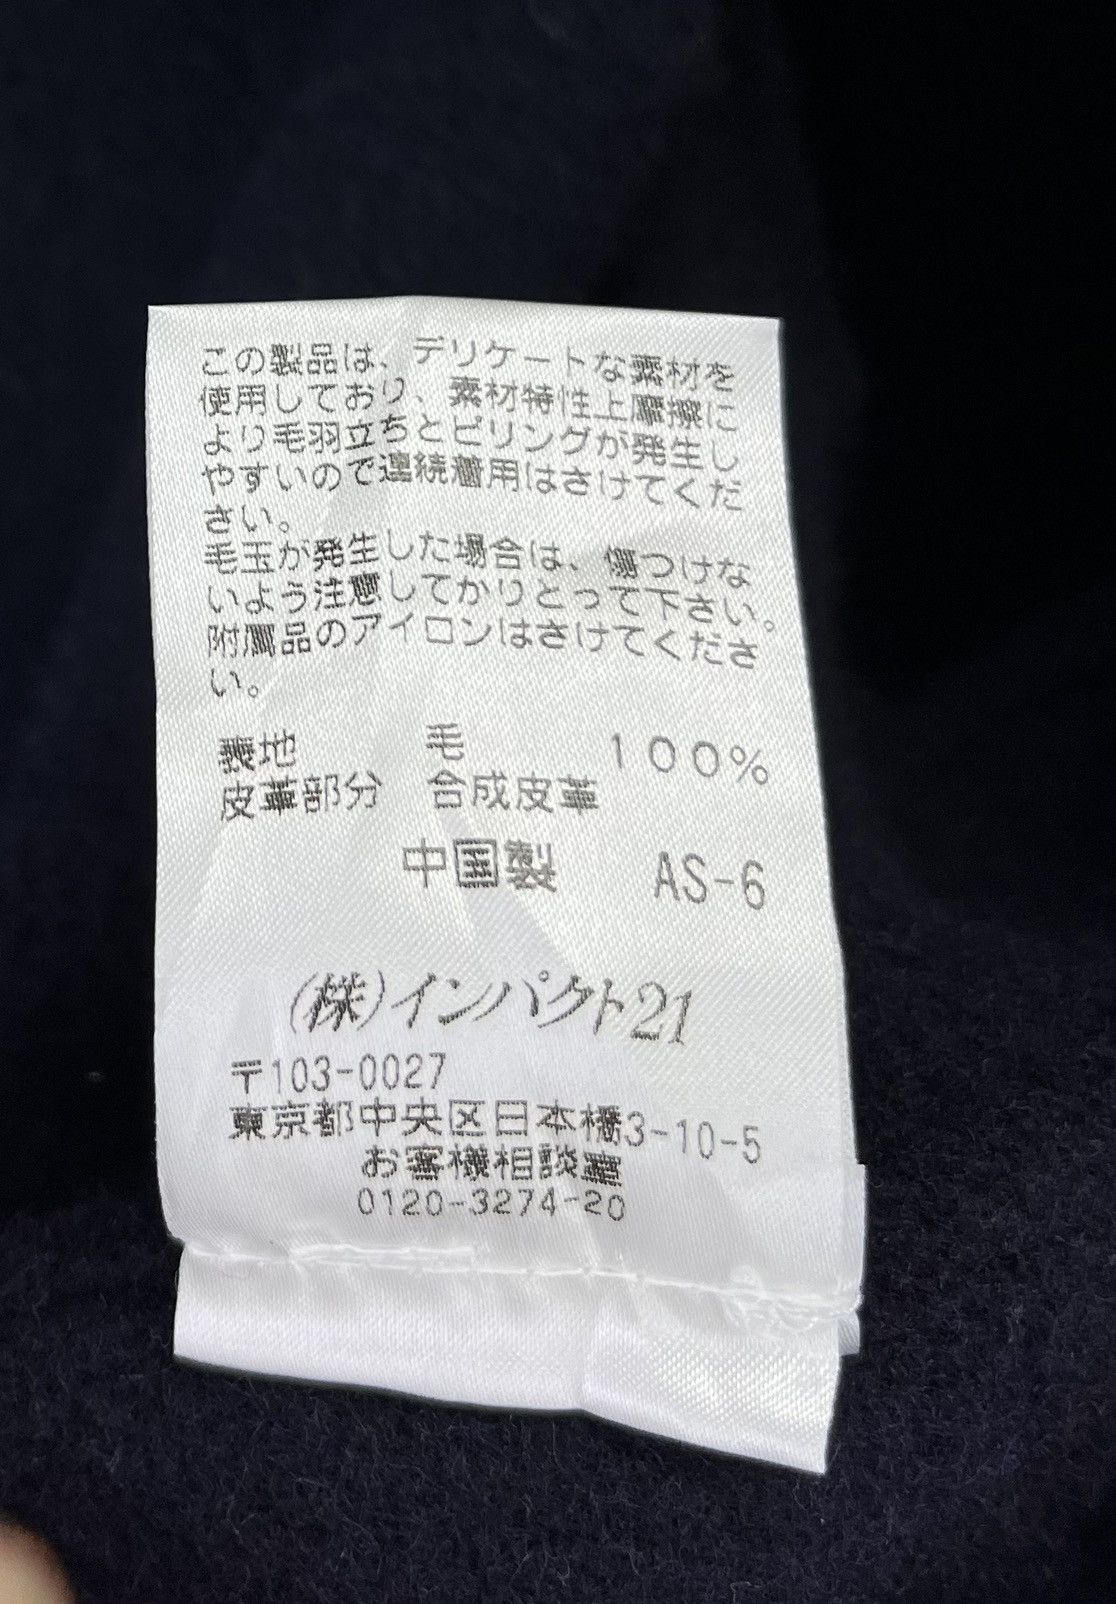 この製品は、デリケートな素材を
使用しており、素材特性上摩擦に
より毛羽立ちとピリングが発生し
やすいので連続着用はさけてくだ
さい。
毛玉が発生した場合は、傷つけな
いよう注意してかりとって下さい。
附属品のアイロンはさけてくださ
い。
表地 毛 100%
皮革部分 合成皮革
中国製 AS-6
(株)インパクト21
〒103-0027
東京都中央区日本橋3-10-5
お客様相談室
0120-3274-20